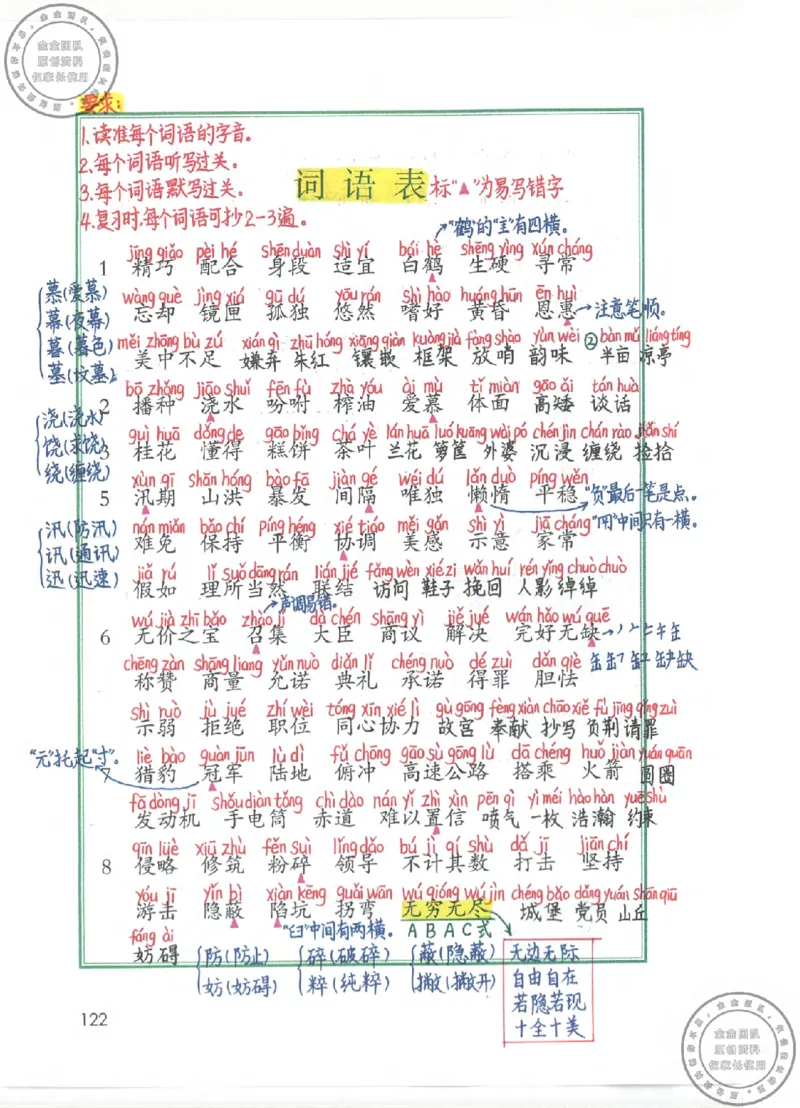 金金团队
原创资料
仅家长使用
要求:
1.读准每个词语的字音。
2.每个词语听写过关。
3.每个词语默写过关。
4.复习时,每个词语可抄2-3遍。
词语表 标“▲”为易写错字
“鹤”的“隹”有四横。
jīng qiǎo pèi hé shēn duàn shì yí bái hè shēng yìng xún cháng
1 精巧 配合 身段 适宜 白鹤 生硬 寻常
慕(爱慕)
幕(夜幕)
暮(暮色)
墓(坟墓)
wàng què jìng xiá gū dú yōu rán shì hào huáng hūn ēn huì
忘却 镜匣 孤独 悠然 嗜好 黄昏 恩惠 →注意笔顺。
měi zhōng bù zú xián qì zhū hóng xiāng qiàn kuàng jià fàng shào yùn wèi ② bàn mǔ liáng tíng
美中不足 嫌弃 朱红 镶嵌 框架 放哨 韵味 半亩 凉亭
bō zhǒng jiāo shuǐ fēn fù zhà yóu ài mù tǐ miàn gāo ǎi tán huà
2 播种 浇水 吩咐 榨油 爱慕 体面 高矮 谈话
浇(浇水)
饶(求饶)
绕(缠绕)
guì huā dǒng de gāo bǐng chá yè lán huā luó kuāng wài pó chén jìn chán rào jiǎn shí
3 桂花 懂得 糕饼 茶叶 兰花 箩筐 外婆 沉浸 缠绕 捡拾
xùn qī shān hóng bào fā jiàn gé wéi dú lǎn duò píng wěn
5 汛期 山洪 暴发 间隔 唯独 懒惰 平稳 “负”最后一笔是点。
汛(防汛)
讯(通讯)
迅(迅速)
nán miǎn bǎo chí píng héng xié tiáo měi gǎn shì yì jiā cháng “用”中间只有一横。
难免 保持 平衡 协调 美感 示意 家常
jiǎ rú lǐ suǒ dāng rán lián jié fǎng wèn xié zi wǎn huí rén yǐng chuò chuò
假如 理所当然 联结 访问 鞋子 挽回 人影绰绰
→声调易错。
wú jià zhī bǎo zhào jí dà chén shāng yì jiě jué wán hǎo wú quē
6 无价之宝 召集 大臣 商议 解决 完好无缺
chēng zàn shāng liang yǔn nuò diǎn lǐ chéng nuò dé zuì dǎn qiè
称赞 商量 允诺 典礼 承诺 得罪 胆怯
shì ruò jù jué zhí wèi tóng xīn xié lì gù gōng fèng xiàn chāo xiě fù jīng qǐng zuì
示弱 拒绝 职位 同心协力 故宫 奉献 抄写 负荆请罪
“元”托起“寸”。
liè bào guàn jūn lù dì fǔ chōng gāo sù gōng lù dā chéng huǒ jiàn yuán quān
7 猎豹 冠军 陆地 俯冲 高速公路 搭乘 火箭 圆圈
fā dòng jī shǒu diàn tǒng chì dào nán yǐ zhì xìn pēn qì yì méi hào hàn yuē shù
发动机 手电筒 赤道 难以置信 喷气 一枚 浩瀚 约束
qīn lüè xiū zhù fěn suì lǐng dǎo bú jì qí shù dǎ jī jiān chí
8 侵略 修筑 粉碎 领导 不计其数 打击 坚持
yóu jī yǐn bì xiàn kēng guǎi wān wú qióng wú jìn chéng bǎo dǎng yuán shān qiū
游击 隐蔽 陷坑 拐弯 无穷无尽 城堡 党员 山丘
fáng ài “臼”中间有两横。 ABAC式
妨碍
防(防止)
妨(妨碍)
碎(破碎)
粹(纯粹)
蔽(隐蔽)
撇(撇开)
无边无际
自由自在
若隐若现
十全十美
122
金金团队
原创资料
仅家长使用